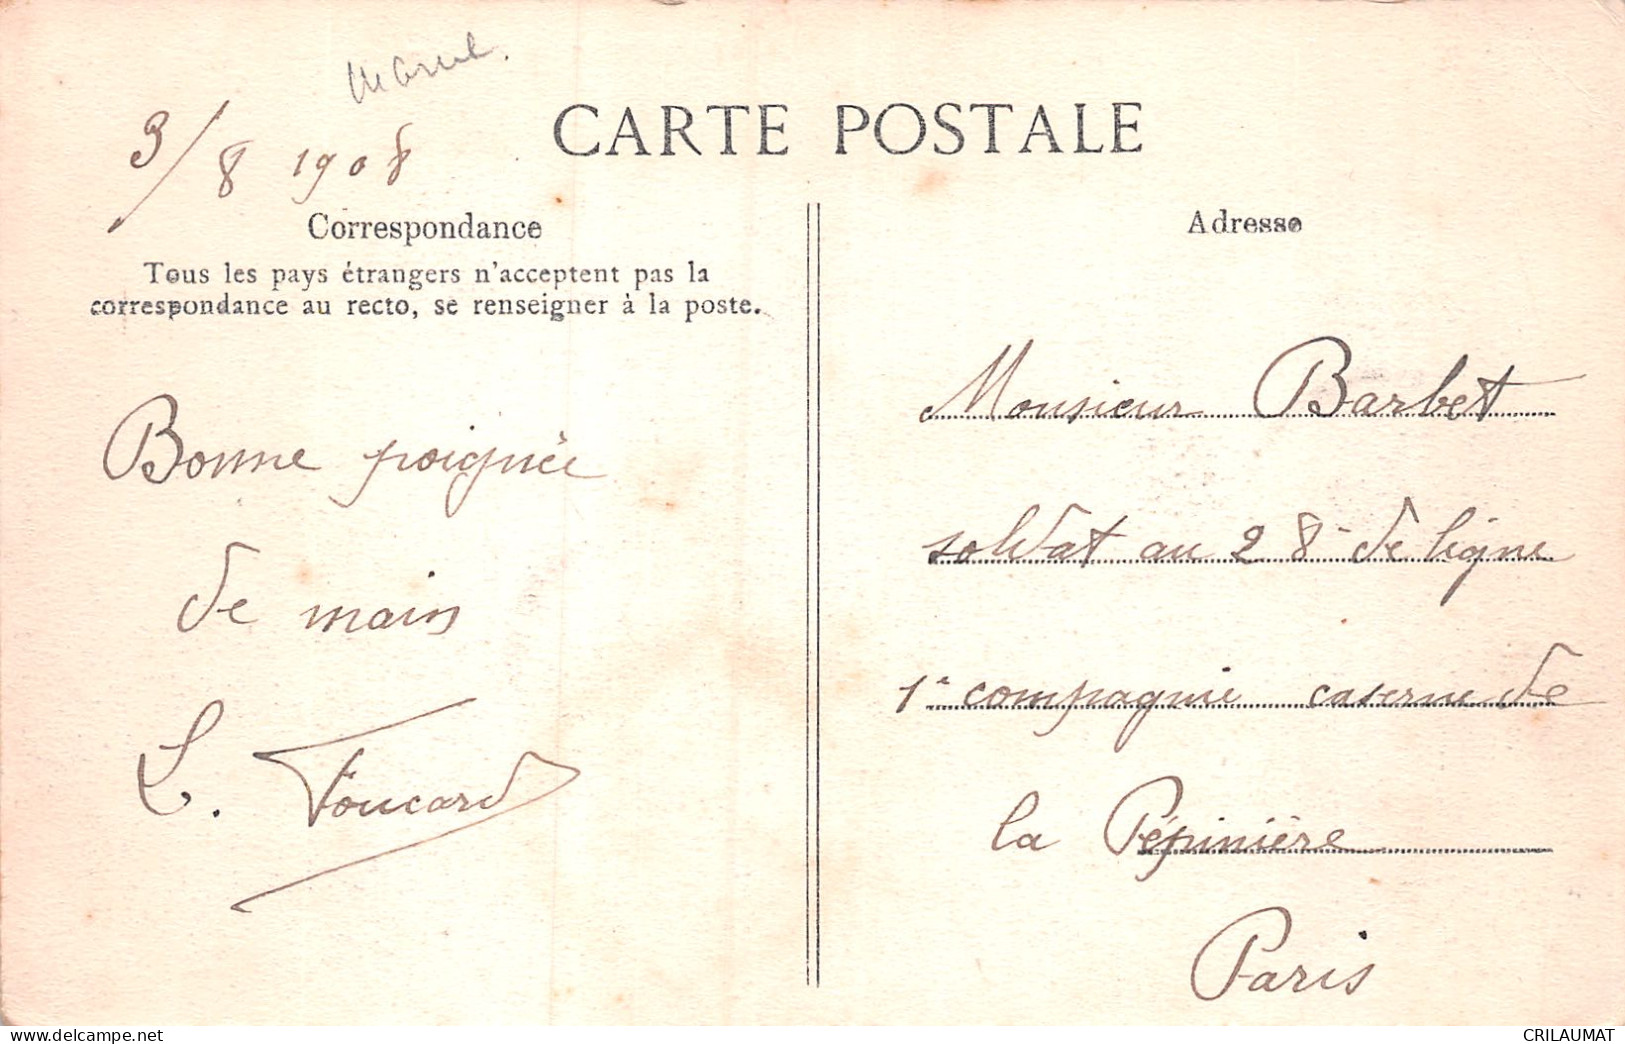 Marne.
3/8 1908
CARTE POSTALE
Correspondance
Tous les pays étrangers n'acceptent pas la
correspondance au recto, se renseigner à la poste.
Bonne poignée
de main
L. Foucard
Adresse
Monsieur Barbet
soldat au 28e de ligne
1e compagnie caserne de
la Pépinière
Paris
CRILAUMAT